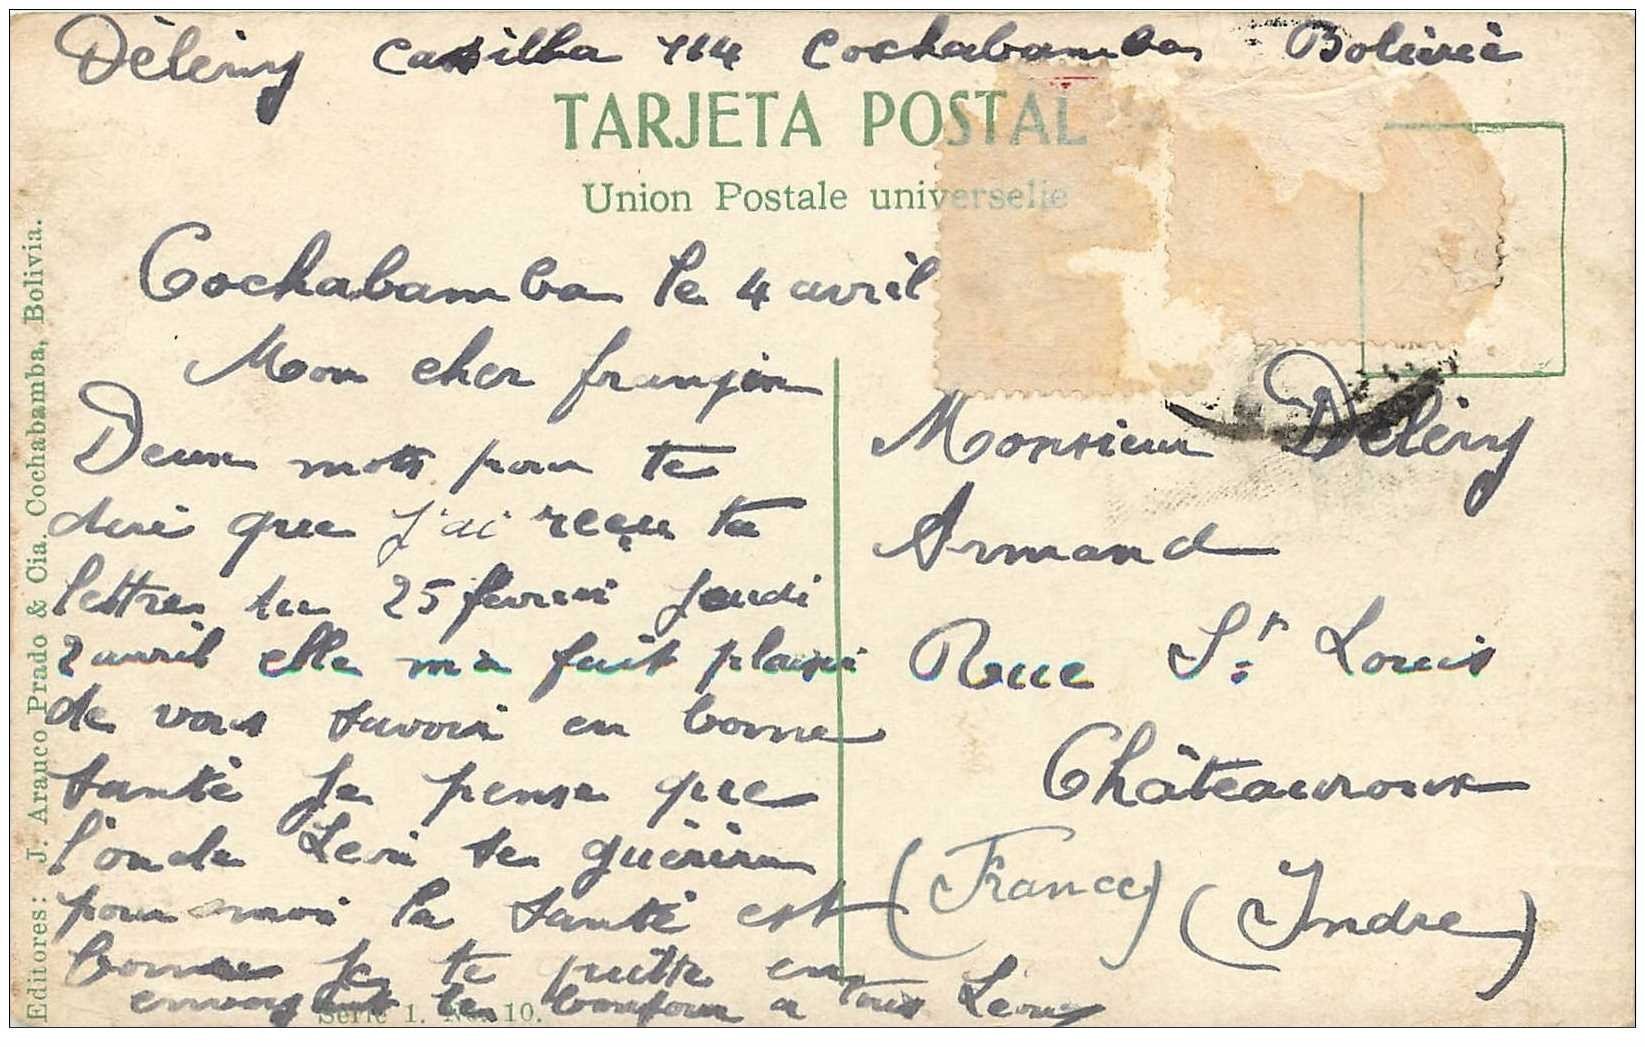 Délérny Casilla 714 Cochabamba Bolivie
TARJETA POSTAL
Union Postale universelle
Cochabamba le 4 avril
Mon cher frangin
Deux mots pour te
dire que j'ai reçu ta
lettre du 25 fevrier jeudi
2 avril elle m'a fait plaisir
de vous savoir en bonne
santé je pense que
l'oncle Leon se guérira
pour moi la santé est
bonne je te quitte en
envoyant le bonjour a tous Léon
Monsieur Délérny
Armand
Rue St Louis
Châteauroux
(France) (Indre)
Editores: J. Arauco Prado & Cia. Cochabamba, Bolivia.
Serie 1. No. 10.